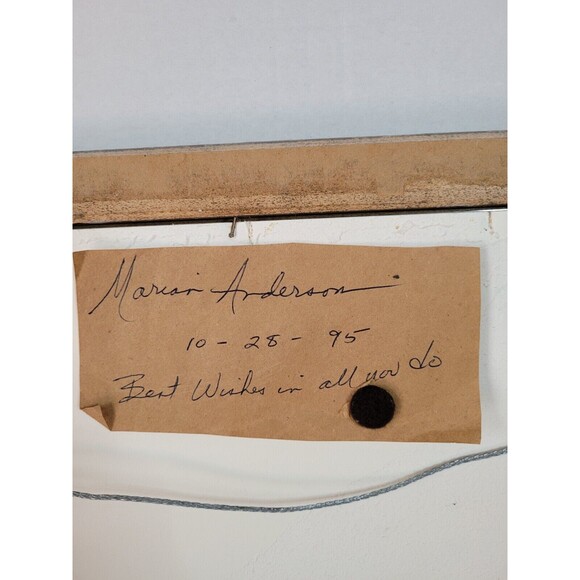 Marian Anderson
10 - 28 - 95
Best Wishes in all you do